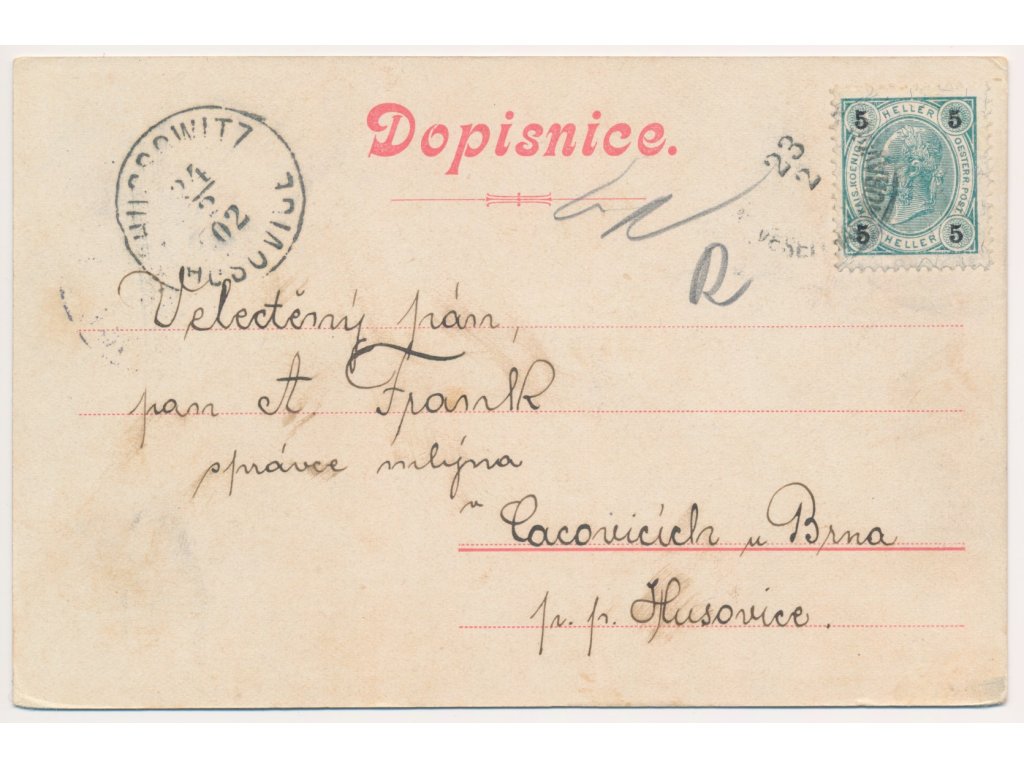 Dopisnice.
HUSSOWITZ
HUSOVICE
24
2
02
23
2
5 HELLER 5
KAIS. KOENIGL.
OESTERR. POST
5 HELLER 5
Velectěný pán,
pan A. Frank
správce mlýna
v Cacovicích u Brna
p. p. Husovice.